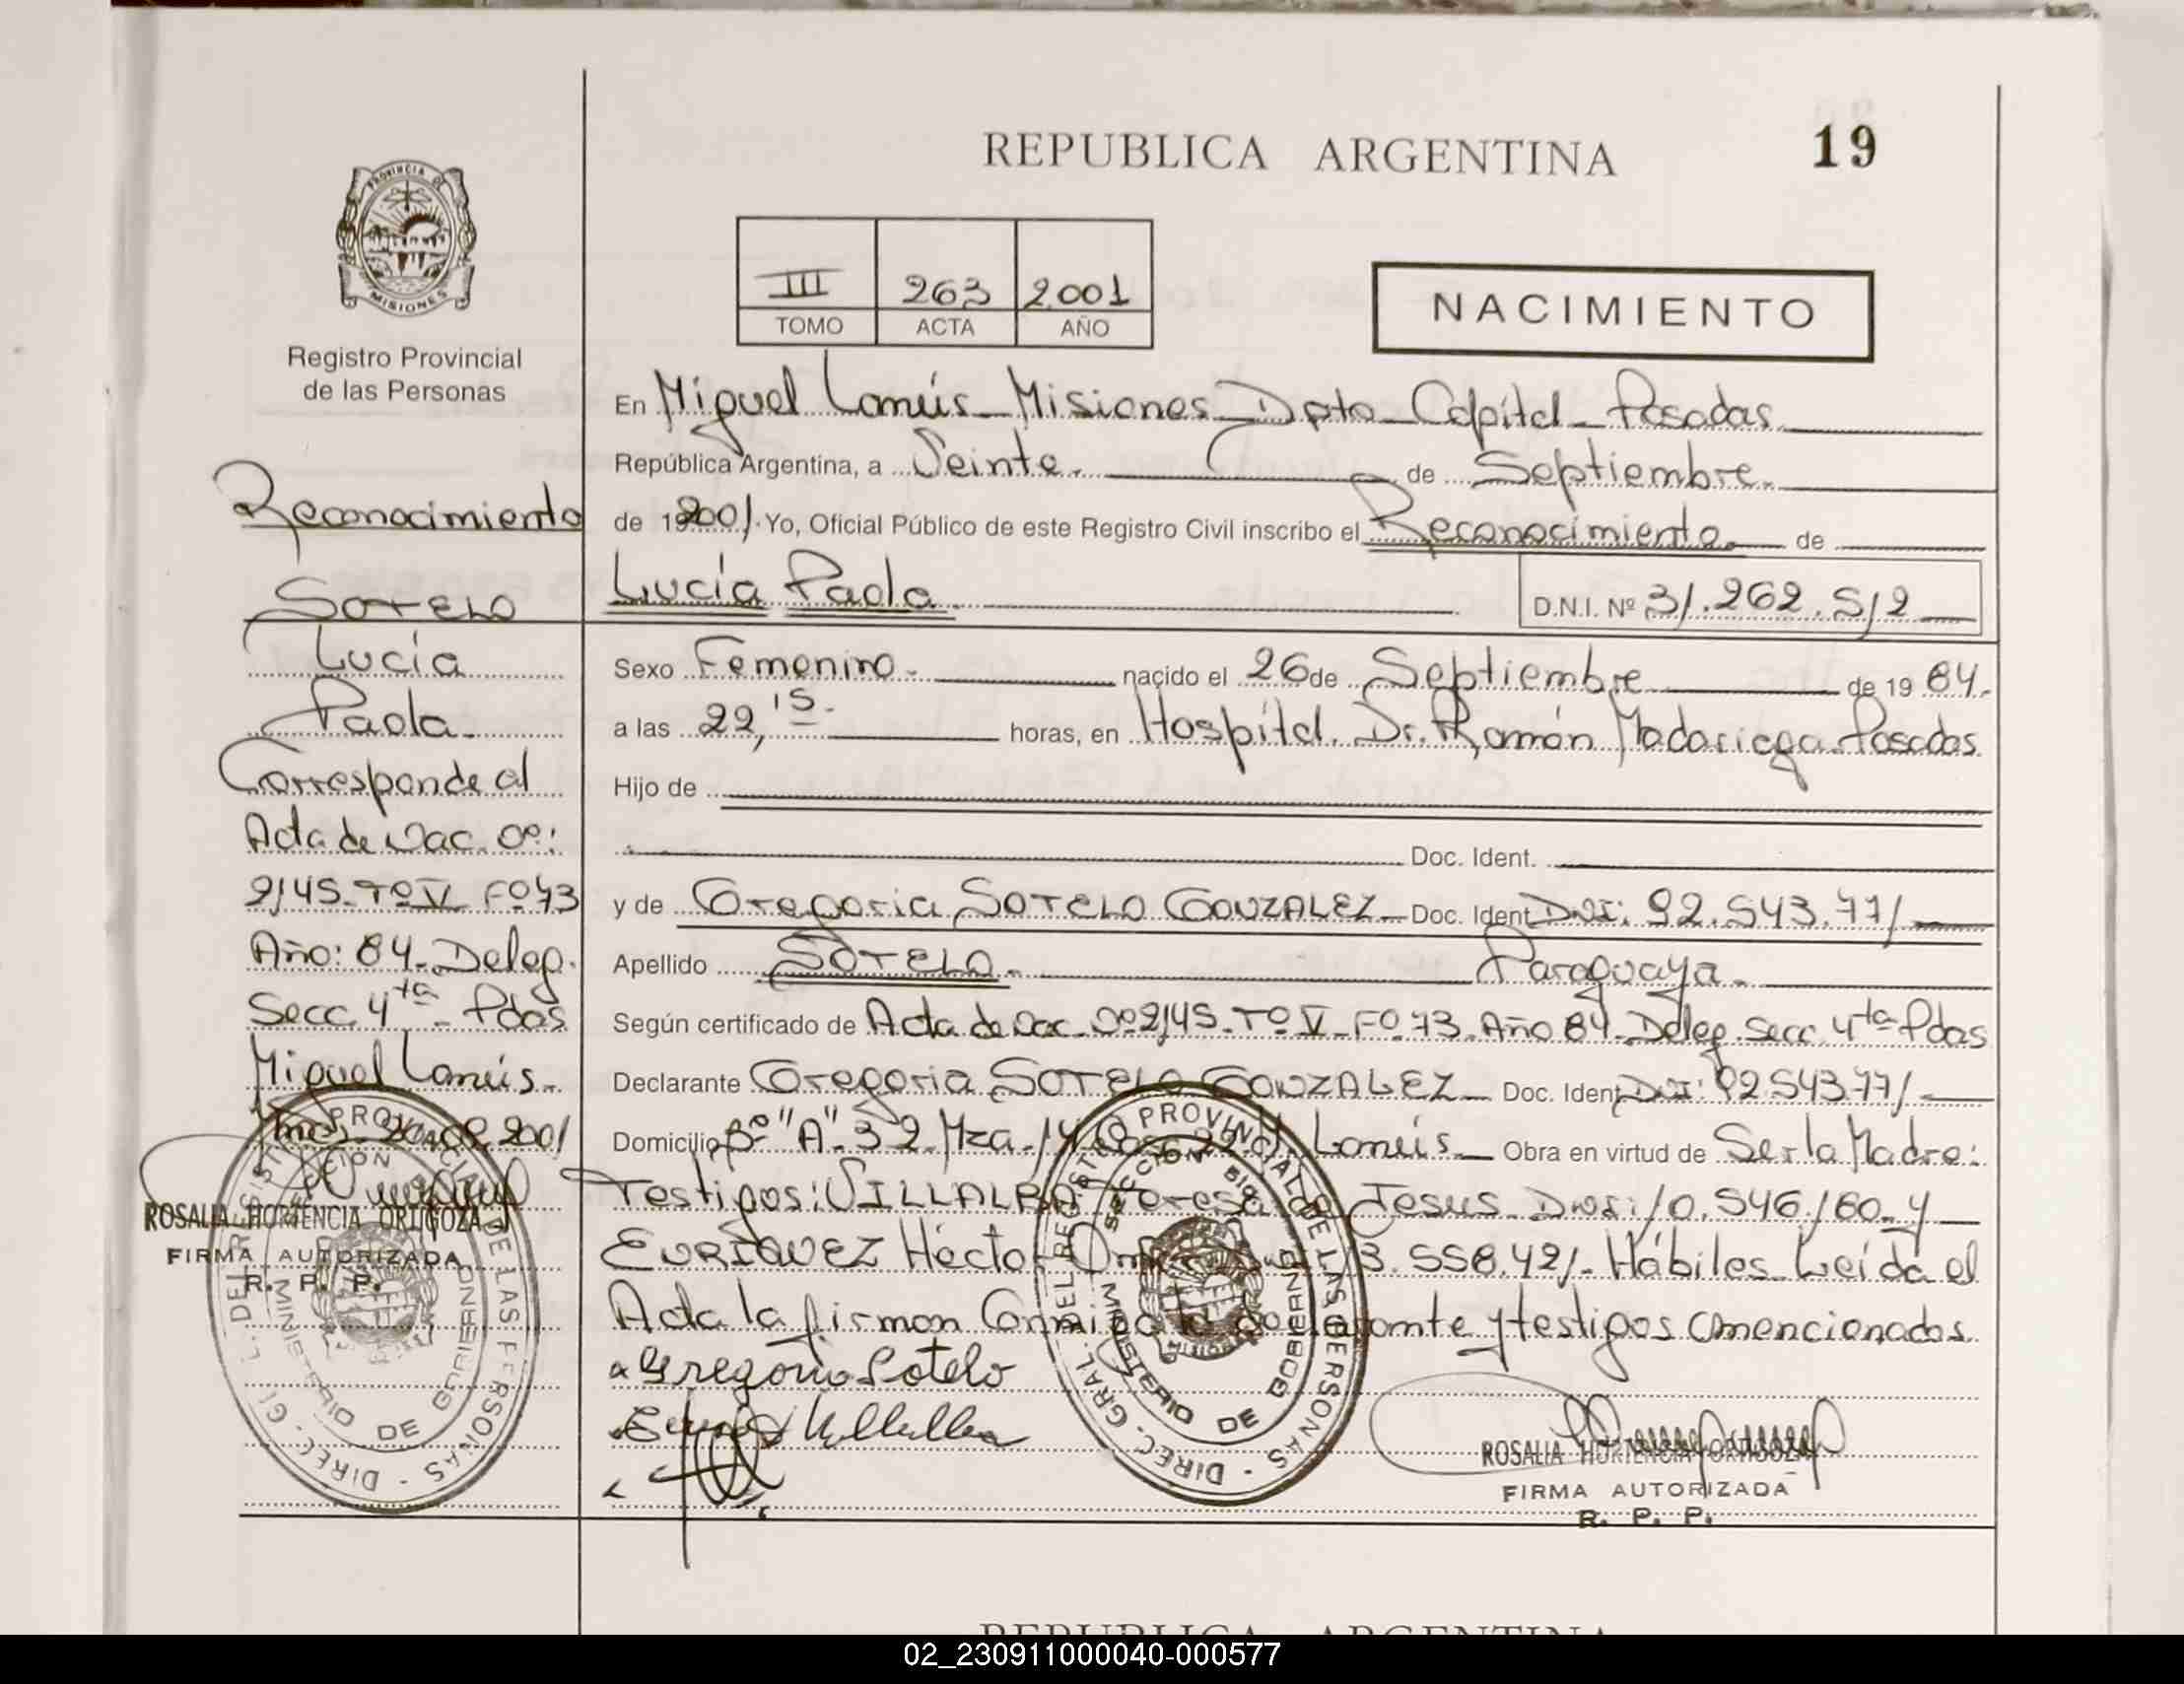 REPUBLICA ARGENTINA
19
PROVINCIA DE
MISIONES
Registro Provincial
de las Personas
III 263 2.001
TOMO ACTA AÑO
NACIMIENTO
Reconocimiento
SOTELO
Lucía
Paola
Corresponde al
Acta de Nac. Nº:
2145 Tº V Fº 73
Año: 84 Deleg.
Secc. 4ta Pdas
Miguel Lanús
2001
ROSALIA HORTENCIA ORTIGOZA
FIRMA AUTORIZADA
R. P. P.
En Miguel Lanús Misiones Dpto Capital Posadas
República Argentina, a Veinte de Septiembre
de 19 2001 Yo, Oficial Público de este Registro Civil inscribo el Reconocimiento de
Lucía Paola D.N.I. Nº 31.262.512
Sexo Femenino nacido el 26 de Septiembre de 19 84.
a las 22,15 horas, en Hospital Dr. Ramón Madariaga Posadas
Hijo de
Doc. Ident.
y de Gregoria SOTELO GONZALEZ Doc. Ident DNI: 92.543.771
Apellido SOTELO Paraguaya
Según certificado de Acta de Nac. Nº 2145 Tº V Fº 73 Año 84 Deleg. Secc. 4ta Pdas
Declarante Gregoria SOTELO GONZALEZ Doc. Ident DNI: 92.543.771
Domicilio Bº "A" 32 Mza. Lanús Obra en virtud de Ser la Madre:
Testigos: VILLALBA Teresa de Jesus DNI: 10.546.160 y
EURIQUEZ Héctor 13.558.421 Hábiles Leída el
Acta la firman Conmigo la declarante y testigos mencionados
Gregoria Sotelo
DIREC. GRAL. DEL REGISTRO PROVINCIAL DE LAS PERSONAS
MINISTERIO DE GOBIERNO
ROSALIA HORTENCIA ORTIGOZA
FIRMA AUTORIZADA
R. P. P.
REPUBLICA ARGENTINA
02_230911000040-000577